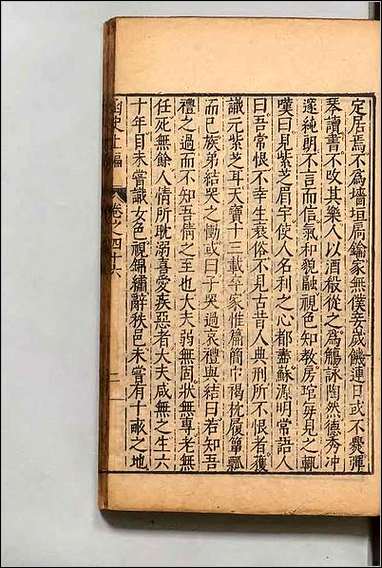 定居焉不爲墻垣扃鑰家無僕妾歲饑連日或不爨彈
琴讀書不改其樂人以酒殽從之爲觴詠陶然德秀冲
邃純朗不言而信氣和貌融視色知教房琯每見之輒
嘆曰見紫芝眉宇使人名利之心都盡蘇源明常語人
曰吾常恨不幸生衰俗不見古昔人典刑所不恨者獲
識元紫芝耳天寶十三載卒家惟篇簡巾褐枕履簞瓢
而已族弟結哭之慟或曰子哭過哀禮與結曰若知吾
禮之過而不知吾情之至也大夫弱無固狀無專老無
任死無餘人情所耽溺喜愛疾惡者大夫咸無之生六
十年目未嘗識女色視錦繡辭秩邑未嘗有十畝之地
函史上編
卷之四十六
二